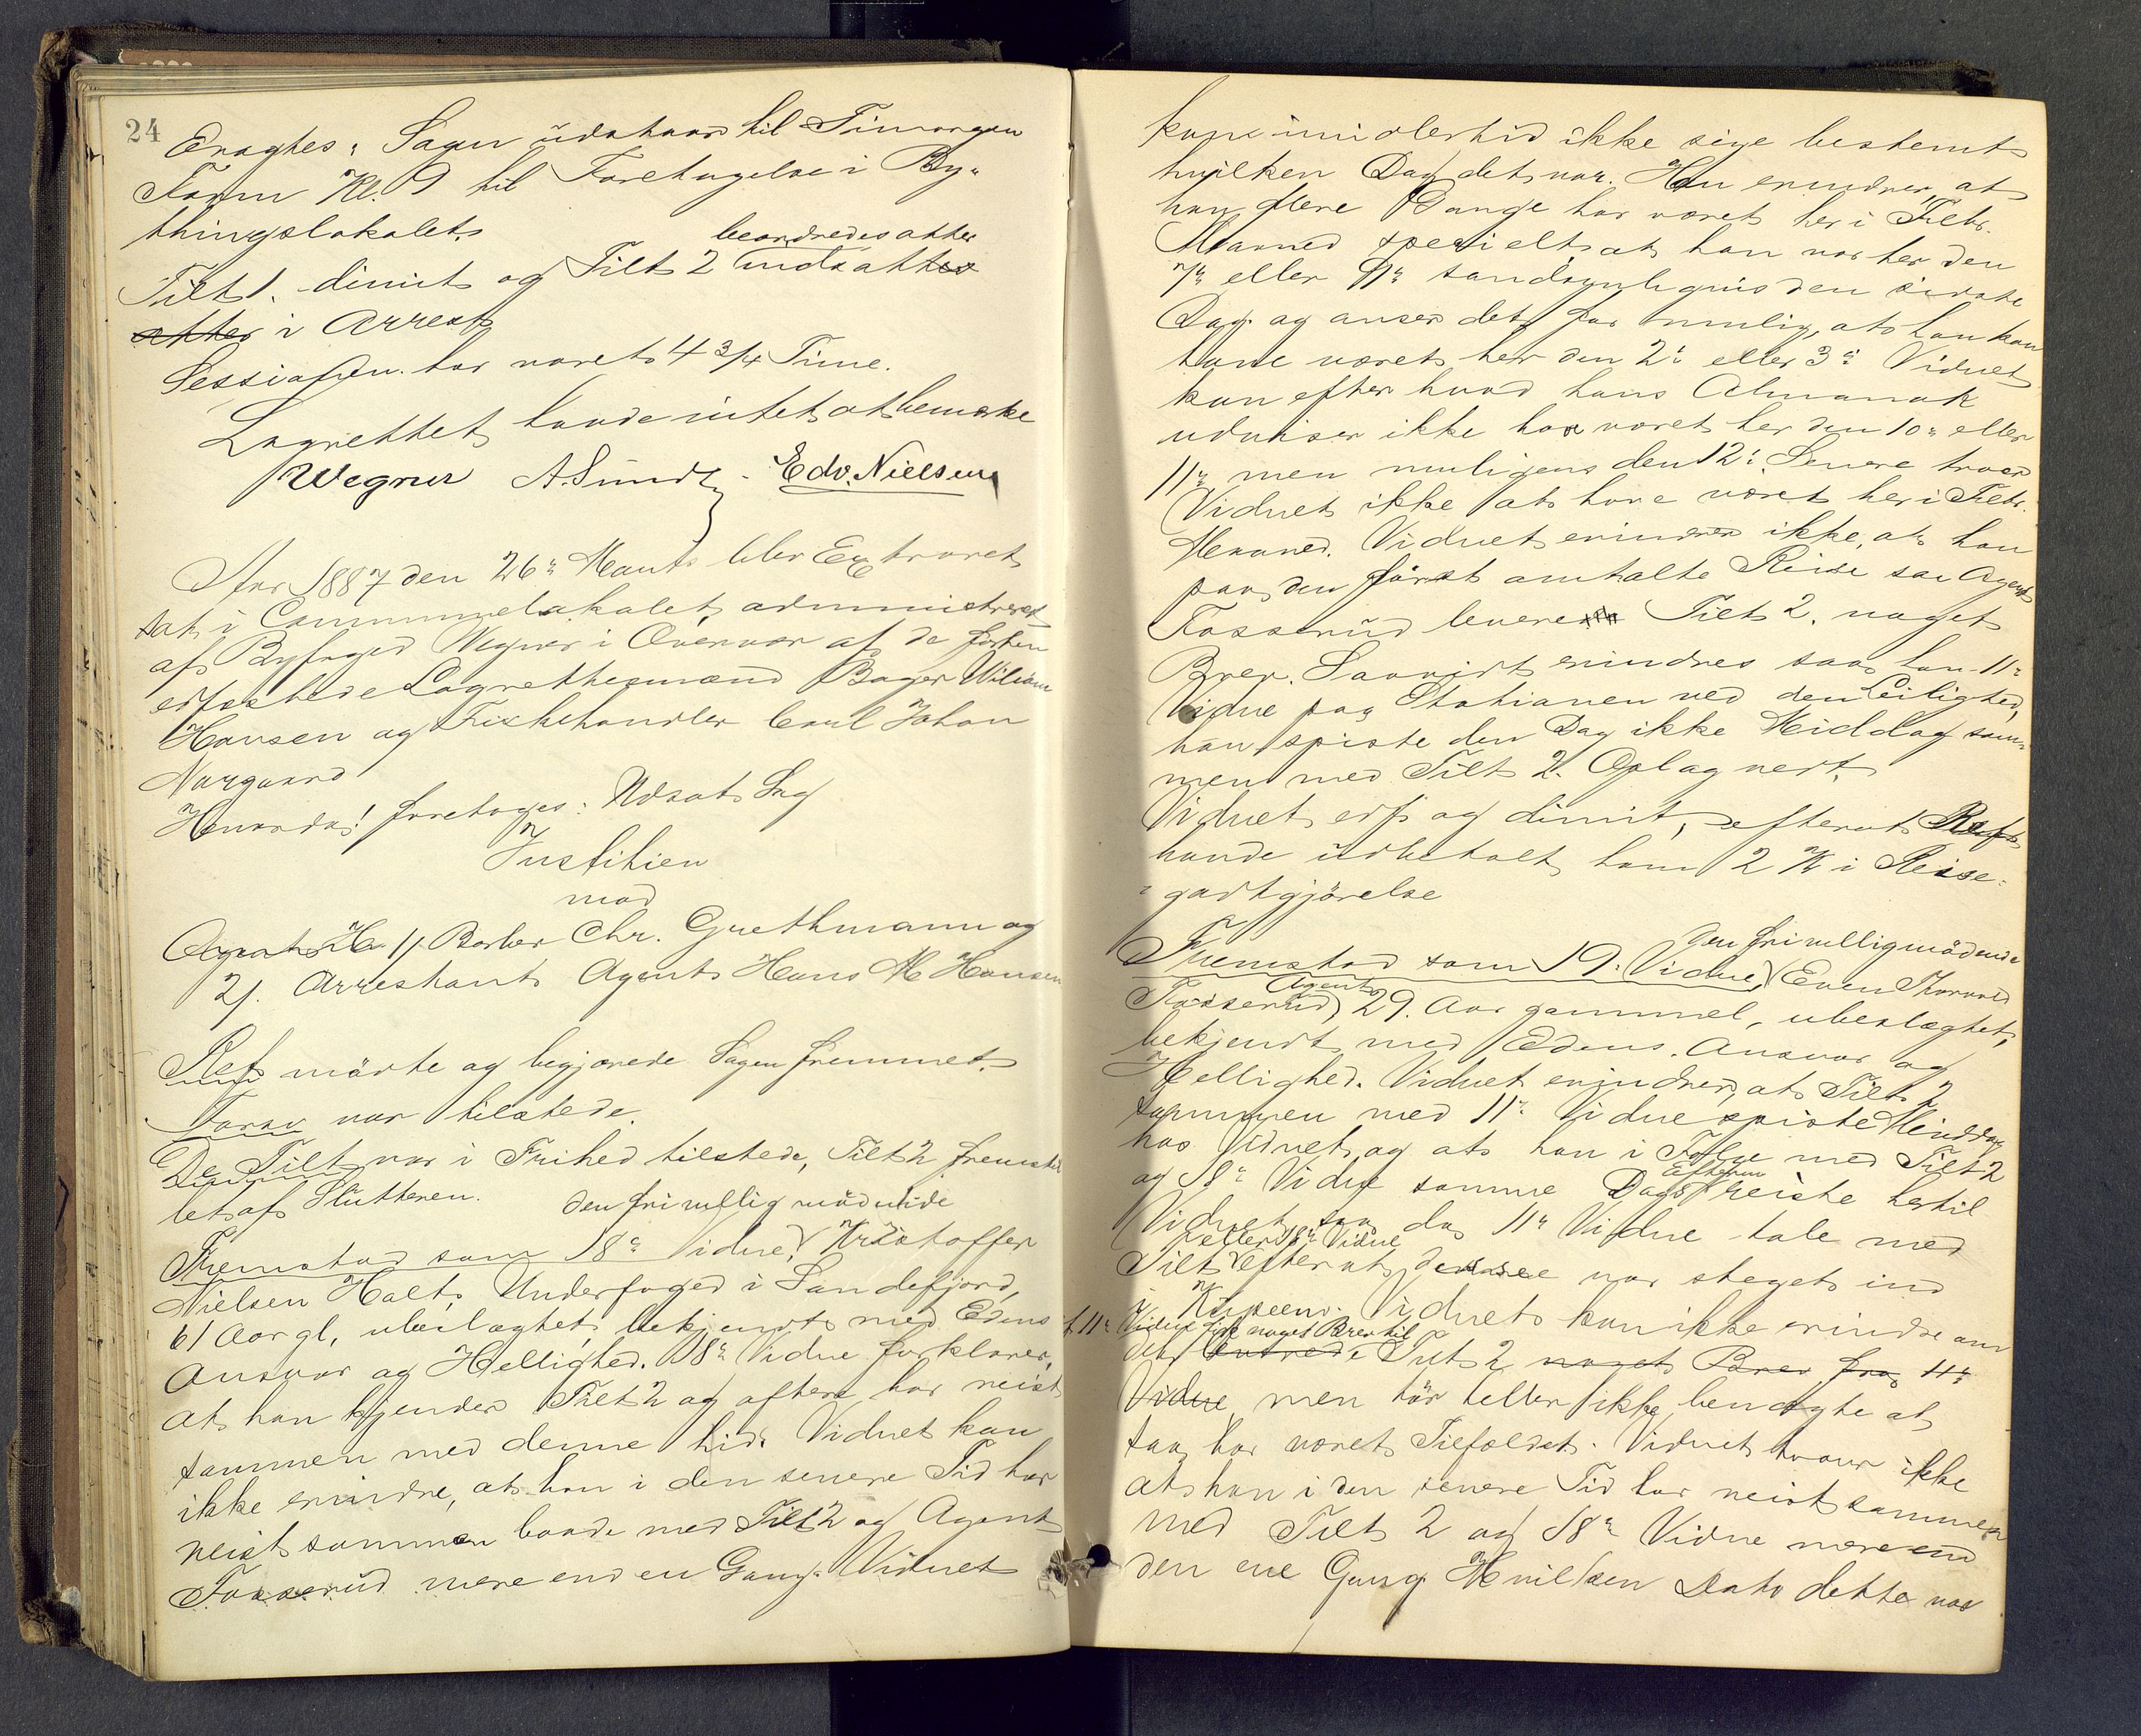 24
Eragtes: Sagen udsættes til Imorgen
Form Kl. 9 til Foretagelse i By-
thingslokalet.
beordredes atter
Tilt 1. dimit og Tilt 2 indsattes
atter i Arrest
Sessionen har varet 4 3/4 Time.
Lagrettet havde intet at bemærke
Wegner A. Sundt Edv. Nielsen
Aar 1887 den 26de Marts blev Extraret
sat i Communelokalet, administreret
af Byfoged Wegner i Overvær af de forhen
edfæstede Lagrettesmænd Bager Wiliam
Hansen og Fiskehandler Carl Johan
Norgaard
Hvorda! foretoges: Udsat Sag
Justitien
mod
Agent H 1). Barber Chr. Grethmann og
2). Arrestant Agent Hans M Hansen
Ref mødte og begjærede Sagen fremmet.
Forsv var tilstede.
De Tilt var i Frihed tilstede, Tilt 2 fremstil
let af Slutteren.
den frivillig mødende
Fremstod som 18de Vidne, Kristoffer
Nielsen Holt, Underfoged i Sandefjord,
61 Aar gl, ubeslægtet, bekjendt med Edens
Ansvar og Hellighed. 18de Vidne forklarer,
at han kjender Tilt 2 og oftere har reist
sammen med denne hid. Vidnet kan
ikke erindre, at han i den senere Tid har
reist sammen baade med Tilt 2 og Agent
Fosserud mere end en Gang. Vidnet
kan imidlertid ikke sige bestemt
hvilken Dag det var. Han erindrer, at
han flere Gange har været her i Febr.
Maaned specielt, at han var her den
7de eller 9de sandsynligvis den sidste
Dag og anser det for mulig, at han kan
have været her den 2de eller 3de Vidnet
kan efter hvad hans Almanak
udviser ikke har været her den 10de eller
11de men muligens den 12de. Senere troer
Vidnet ikke at have været her i Febr.
Maaned. Vidnet erindrer ikke, at han
paa den først omtalte Reise saa Agent
Fosserud levere Tilt 2. noget
Brev. Saavidt erindres saa han 11de
Vidne paa Stationen ved den Leilighed,
han spiste den Dag ikke Middag sam-
men med Tilt 2. Opl og vedt.
Vidnet edf og dimit, efterat Ref
havde udbetalt ham 2 Kr i Reise-
godtgjørelse
den frivillig mødende
Fremstod som 19. Vidne, Even Thorvald
Agent
Fosserud, 29. Aar gammel, ubeslægtet,
bekjendt med Edens Ansvar og
Hellighed. Vidnet erindrer, at Tilt 2
sammen med 11de Vidne spiste Middag
hos Vidnet, og at han i Følge med Tilt 2
Efterm
og 18de Vidne samme Dags reiste hertil
Vidnet saa da 11de Vidne tale med
eller 18de Vidne
Tilt efterat denne var steget ind
i Kupeen. Vidnet kan ikke erindre om
11de Vidne fik noget Brev til
der leverede Tilt 2 noget Brev fra 11de
Vidne men tør heller ikke benegte at
saa har været Tilfældet. Vidnet troer ikke
at han i den senere Tid har reist sammen
med Tilt 2 og 18de Vidne mere end
den ene Gang. Hvilken Dato dette var